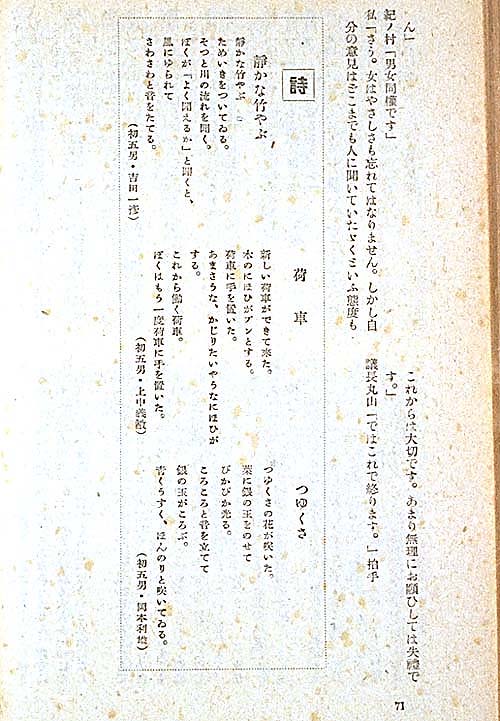 ん」
紀ノ村「男女同權です」
私「さう。女はやさしさも忘れてはなりません。しかし自
分の意見はどこまでも人に聞いていたゞくといふ態度も
これからは大切です。あまり無理にお願ひしては失禮で
す。」
議長丸山「ではこれで終ります。」拍手
詩
靜かな竹やぶ
靜かな竹やぶ
ためいきをついてゐる。
そつと川の流れを聞く。
ぼくが「よく聞えるか」と聞くと、
風にゆられて
さわさわと音をたてる。
(初五男・吉田一彦)
荷車
新しい荷車ができて來た。
木のにほひがプンとする。
荷車に手を置いた。
あまさうな、かじりたいやうなにほひが
する。
これから働く荷車。
ぼくはもう一度荷車に手を置いた。
(初五男・上甲義
つゆくさ
つゆくさの花が咲いた。
葉に銀の玉をのせて
ぴかぴか光る。
ころころと音を立てて
銀の玉がころぶ。
青くうすく、ほんのりと咲いてゐる。
(初五男・岡本利
71